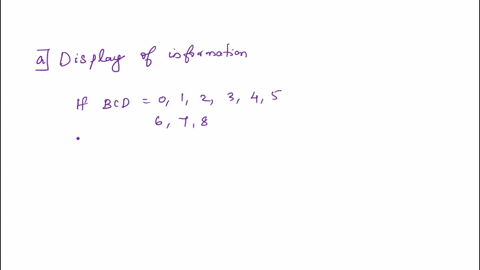 a] Display of isformation
If BCD = 0, 1, 2, 3, 4, 5
6, 7, 8